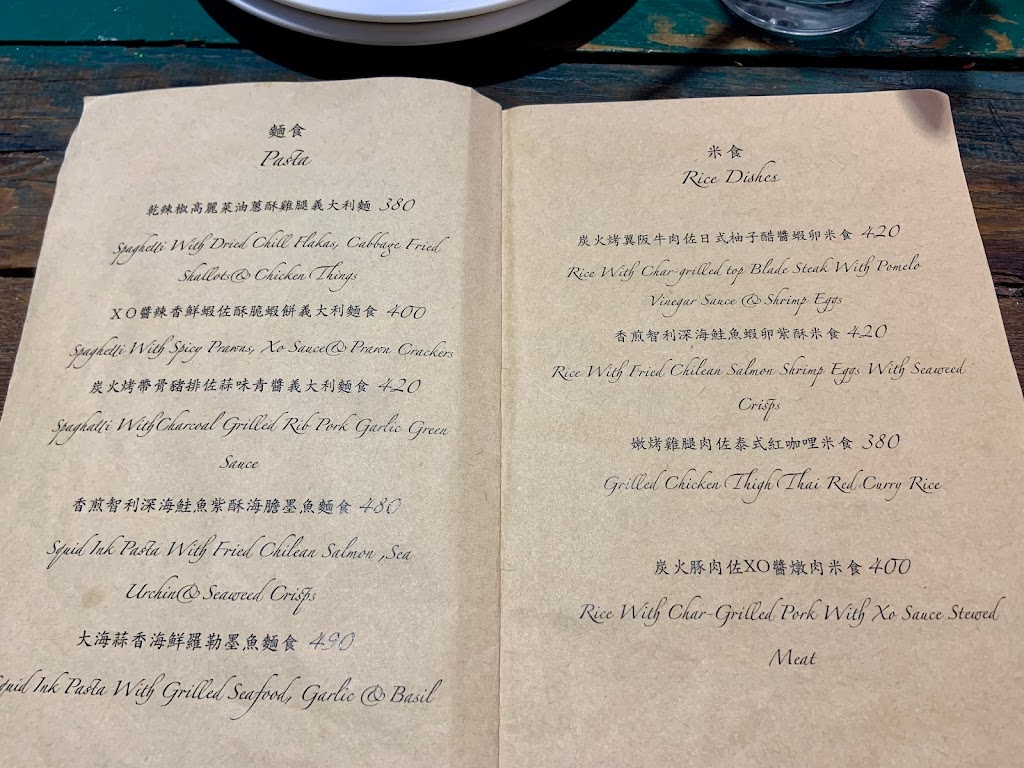 麵食
Pasta
乾辣椒高麗菜油蔥酥雞腿義大利麵 380
Spaghetti With Dried Chill Flakas, Cabbage Fried
Shallots& Chicken Things
XO醬辣香鮮蝦佐酥脆蝦餅義大利麵食 400
Spaghetti With Spicy Prawns, Xo Sauce& Prawn Crackers
炭火烤帶骨豬排佐蒜味青醬義大利麵食 420
Spaghatti WithCharcoal Grilled Rib Pork Garlic Green
Sauce
香煎智利深海鮭魚紫酥海膽墨魚麵食 480
Squid Ink Pasta With Fried Chilean Salmon ,Sea
Urchin& Seaweed Crisps
大海蒜香海鮮羅勒墨魚麵食 490
Squid Ink Pasta With Grilled Seafood, Garlic & Basil
米食
Rice Dishes
炭火烤翼阪牛肉佐日式柚子醋醬蝦卵米食 420
Rice With Char-grilled top Blade Steak With Pomelo
Vinegar Sauce & Shrimp Eggs
香煎智利深海鮭魚蝦卵紫酥米食 420
Rice With Fried Chilean Salmon Shrimp Eggs With Seaweed
Crisps
嫩烤雞腿肉佐泰式紅咖哩米食 380
Grilled Chicken Thigh Thai Red Curry Rice
炭火豚肉佐XO醬燉肉米食 400
Rice With Char-Grilled Pork With Xo Sauce Stewed
Meat